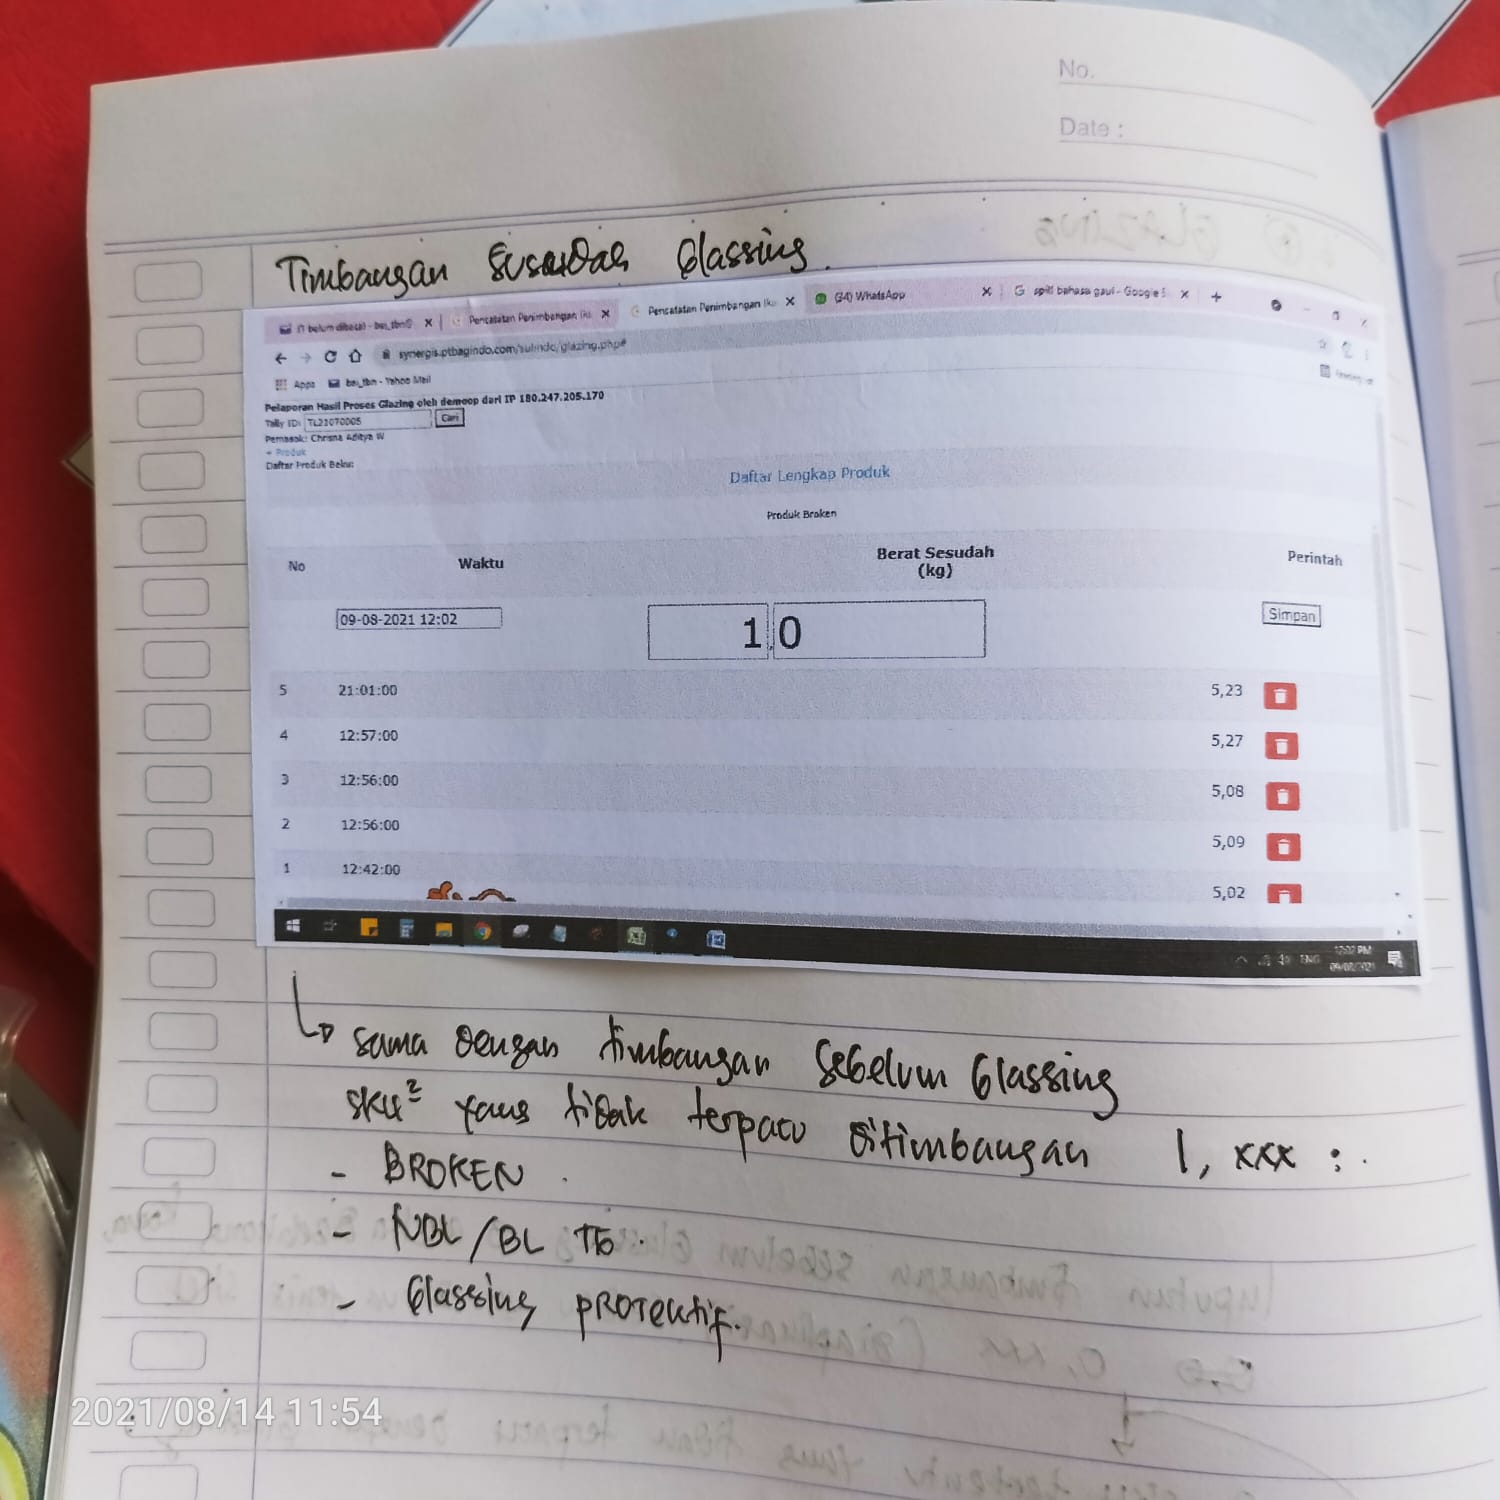 No.
Date :
Timbangan Susudah Glassing.
(1 belum dibaca) - bai_tbn@
Pencatatan Penimbangan Ik
Pencatatan Penimbangan Ik
(34) WhatsApp
spill bahasa gaul - Google S
synergis.ptbagindo.com/sulindo/glazing.php#
Apps
bai_tbn - Yahoo Mail
Pelaporan Hasil Proses Glazing oleh demoop dari IP 180.247.205.170
Tally ID: TL21070005 Cari
Pemasok: Chrisna Aditya W
+ Produk
Daftar Produk Beku:
Daftar Lengkap Produk
Produk Broken
No Waktu Berat Sesudah (kg) Perintah
09-08-2021 12:02 1,0 Simpan
5 21:01:00 5,23
4 12:57:00 5,27
3 12:56:00 5,08
2 12:56:00 5,09
1 12:42:00 5,02
ENG 12:02 PM
09/08/2021
sama dengan timbangan sebelum Glassing
sku² yang tidak terpacu ditimbangan 1, xxx :
- BROKEN
- NBL/BL TB
- Glassing protektif.
2021/08/14 11:54